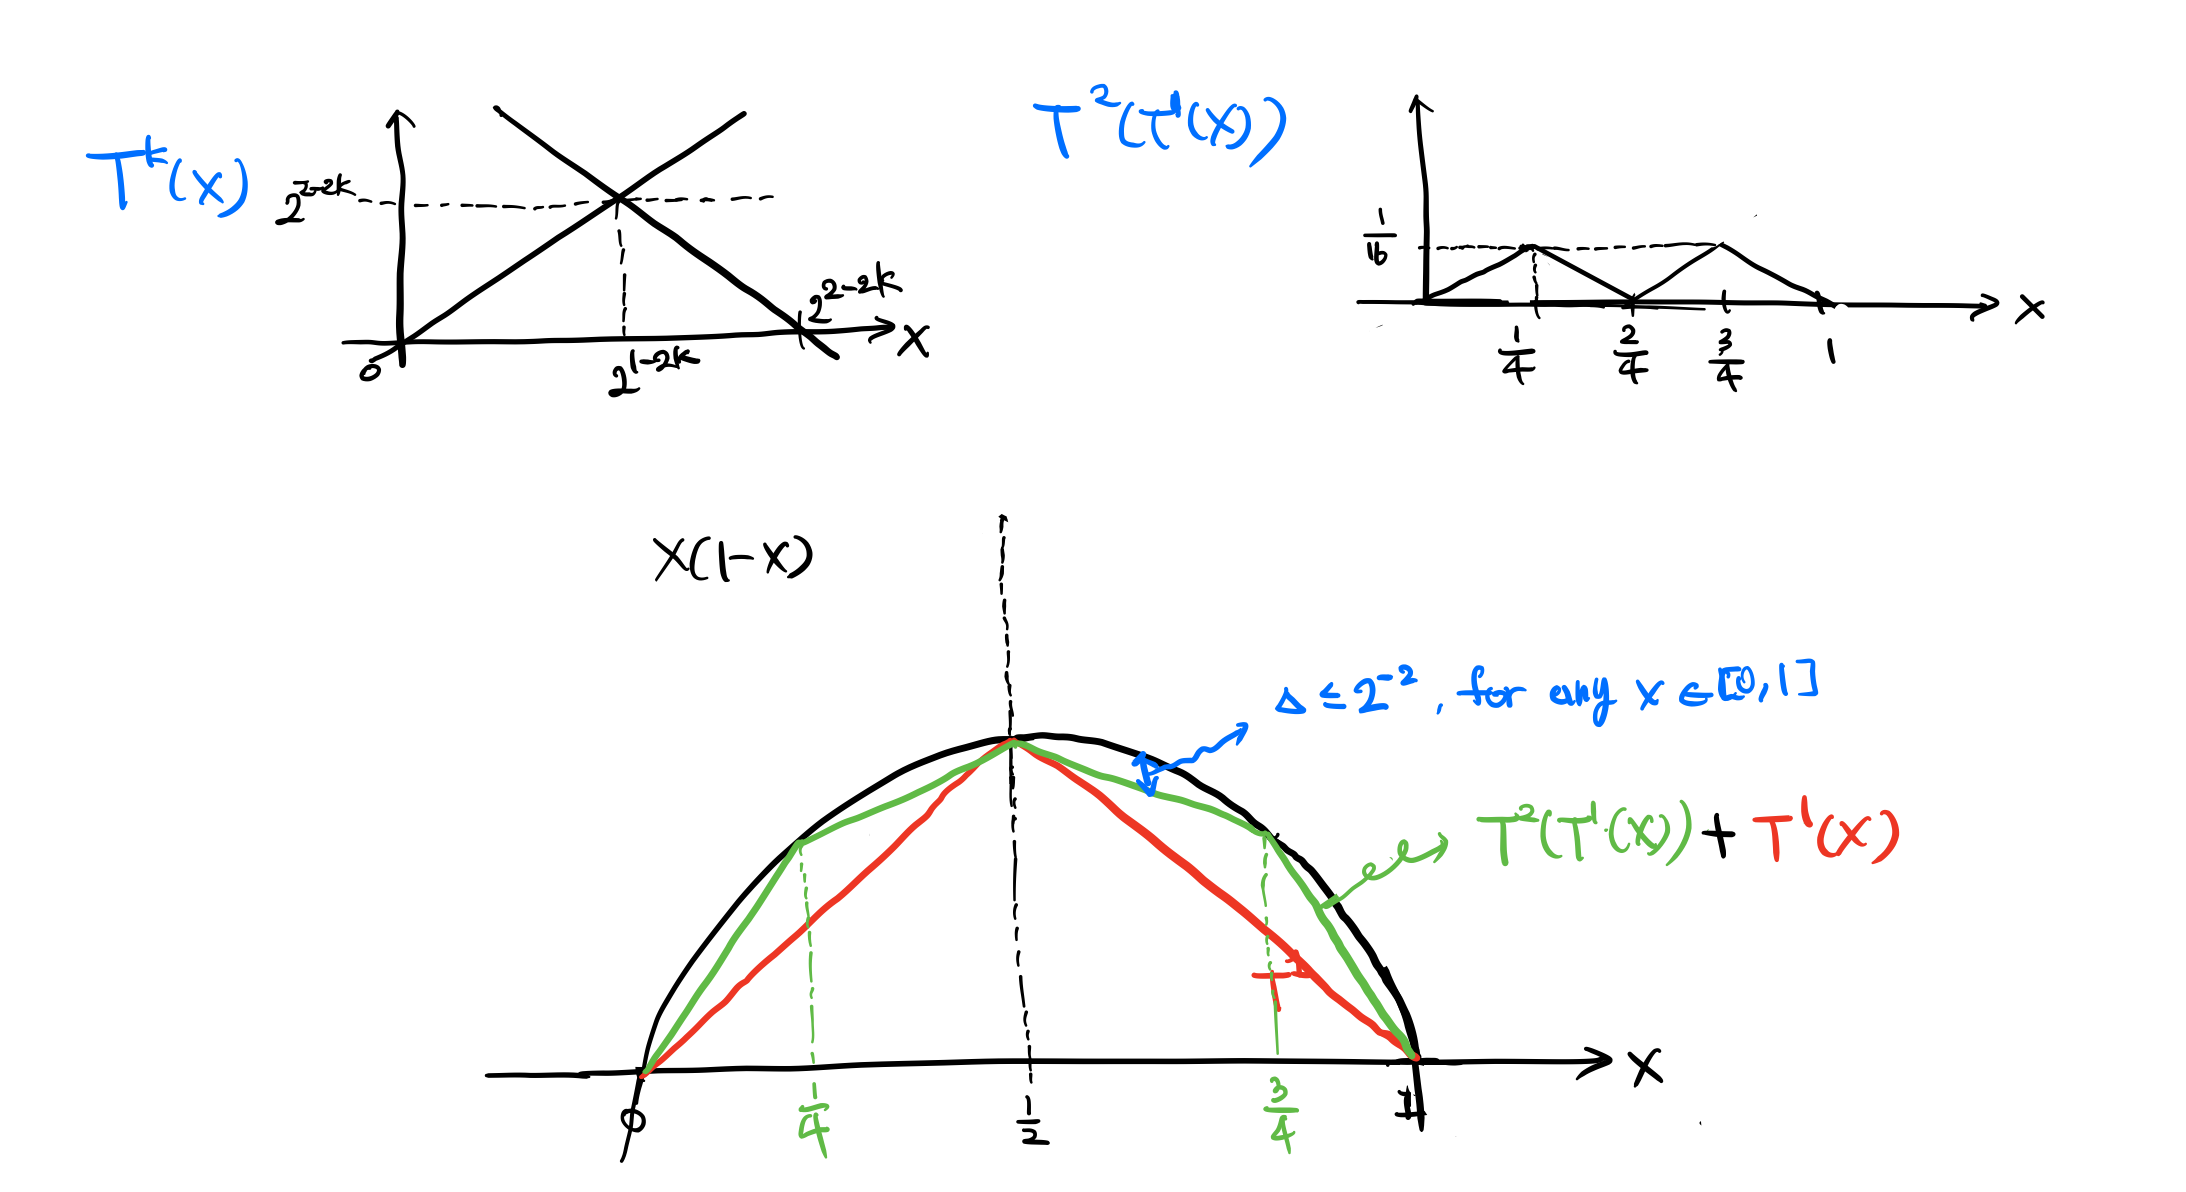 T^k(x)
2^{2-2k}
2^{2-2k}
x
0
2^{1-2k}
T^2(T^1(x))
1/16
x
1/4
2/4
3/4
1
x(1-x)
Δ ≤ 2^{-2}, for any x ∈ [0,1]
T^2(T^1(x)) + T^1(x)
x
0
1/4
1/2
3/4
1